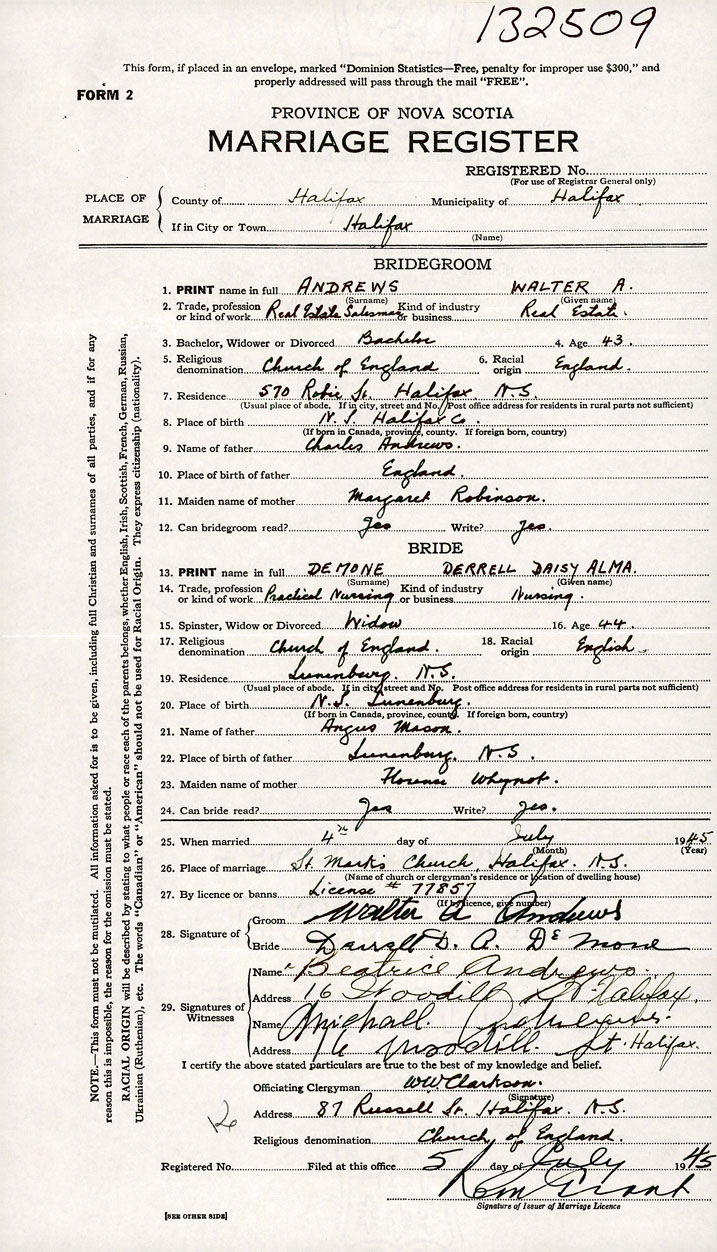 132509
This form, if placed in an envelope, marked “Dominion Statistics—Free, penalty for improper use $300,” and
properly addressed will pass through the mail “FREE”.
FORM 2
PROVINCE OF NOVA SCOTIA
MARRIAGE REGISTER
REGISTERED No.
(For use of Registrar General only)
PLACE OF MARRIAGE
County of Halifax Municipality of Halifax
If in City or Town Halifax
(Name)
BRIDEGROOM
1. PRINT name in full ANDREWS WALTER A.
(Surname) (Given name)
2. Trade, profession or kind of work Real Estate Salesman Kind of industry or business Real Estate.
3. Bachelor, Widower or Divorced Bachelor 4. Age 43.
5. Religious denomination Church of England 6. Racial origin England.
7. Residence 570 Robie St. Halifax N.S.
(Usual place of abode. If in city, street and No. Post office address for residents in rural parts not sufficient)
8. Place of birth N.S. Halifax Co.
(If born in Canada, province, county. If foreign born, country)
9. Name of father Charles Andrews.
10. Place of birth of father England.
11. Maiden name of mother Margaret Robinson.
12. Can bridegroom read? Yes Write? Yes.
BRIDE
13. PRINT name in full DEMONE DERRELL DAISY ALMA.
(Surname) (Given name)
14. Trade, profession or kind of work Practical Nursing Kind of industry or business Nursing.
15. Spinster, Widow or Divorced Widow 16. Age 44.
17. Religious denomination Church of England. 18. Racial origin English.
19. Residence Lunenburg. N.S.
(Usual place of abode. If in city, street and No. Post office address for residents in rural parts not sufficient)
20. Place of birth N.S. Lunenburg.
(If born in Canada, province, county. If foreign born, country)
21. Name of father Angus Mason.
22. Place of birth of father Lunenburg. N.S.
23. Maiden name of mother Florence Whynot.
24. Can bride read? Yes Write? Yes.
25. When married 4th day of July 1945
(Month) (Year)
26. Place of marriage St. Mark's Church, Halifax. N.S.
(Name of church or clergyman's residence or location of dwelling house)
27. By licence or banns License # 77857
(If by licence, give number)
28. Signature of
Groom Walter A Andrews
Bride Darrell D. A. DeMone
29. Signatures of Witnesses
Name Beatrice Andrews.
Address 16 Woodill St Halifax.
Name Michall
Address 16 Woodill. St. Halifax.
I certify the above stated particulars are true to the best of my knowledge and belief.
Officiating Clergyman WW Clarkson.
(Signature)
Address 87 Russell St. Halifax. N.S.
Religious denomination Church of England.
Registered No. Filed at this office 5 day of July 1945
Grant
Signature of Issuer of Marriage Licence
[SEE OTHER SIDE]
NOTE.—This form must not be mutilated. All information asked for is to be given, including full Christian and surnames of all parties, and if for any
reason this is impossible, the reason for the omission must be stated.
RACIAL ORIGIN will be described by stating to what people or race each of the parents belongs, whether English, Irish, Scottish, French, German, Russian,
Ukrainian (Ruthenian), etc. The words “Canadian” or “American” should not be used for Racial Origin. They express citizenship (nationality).